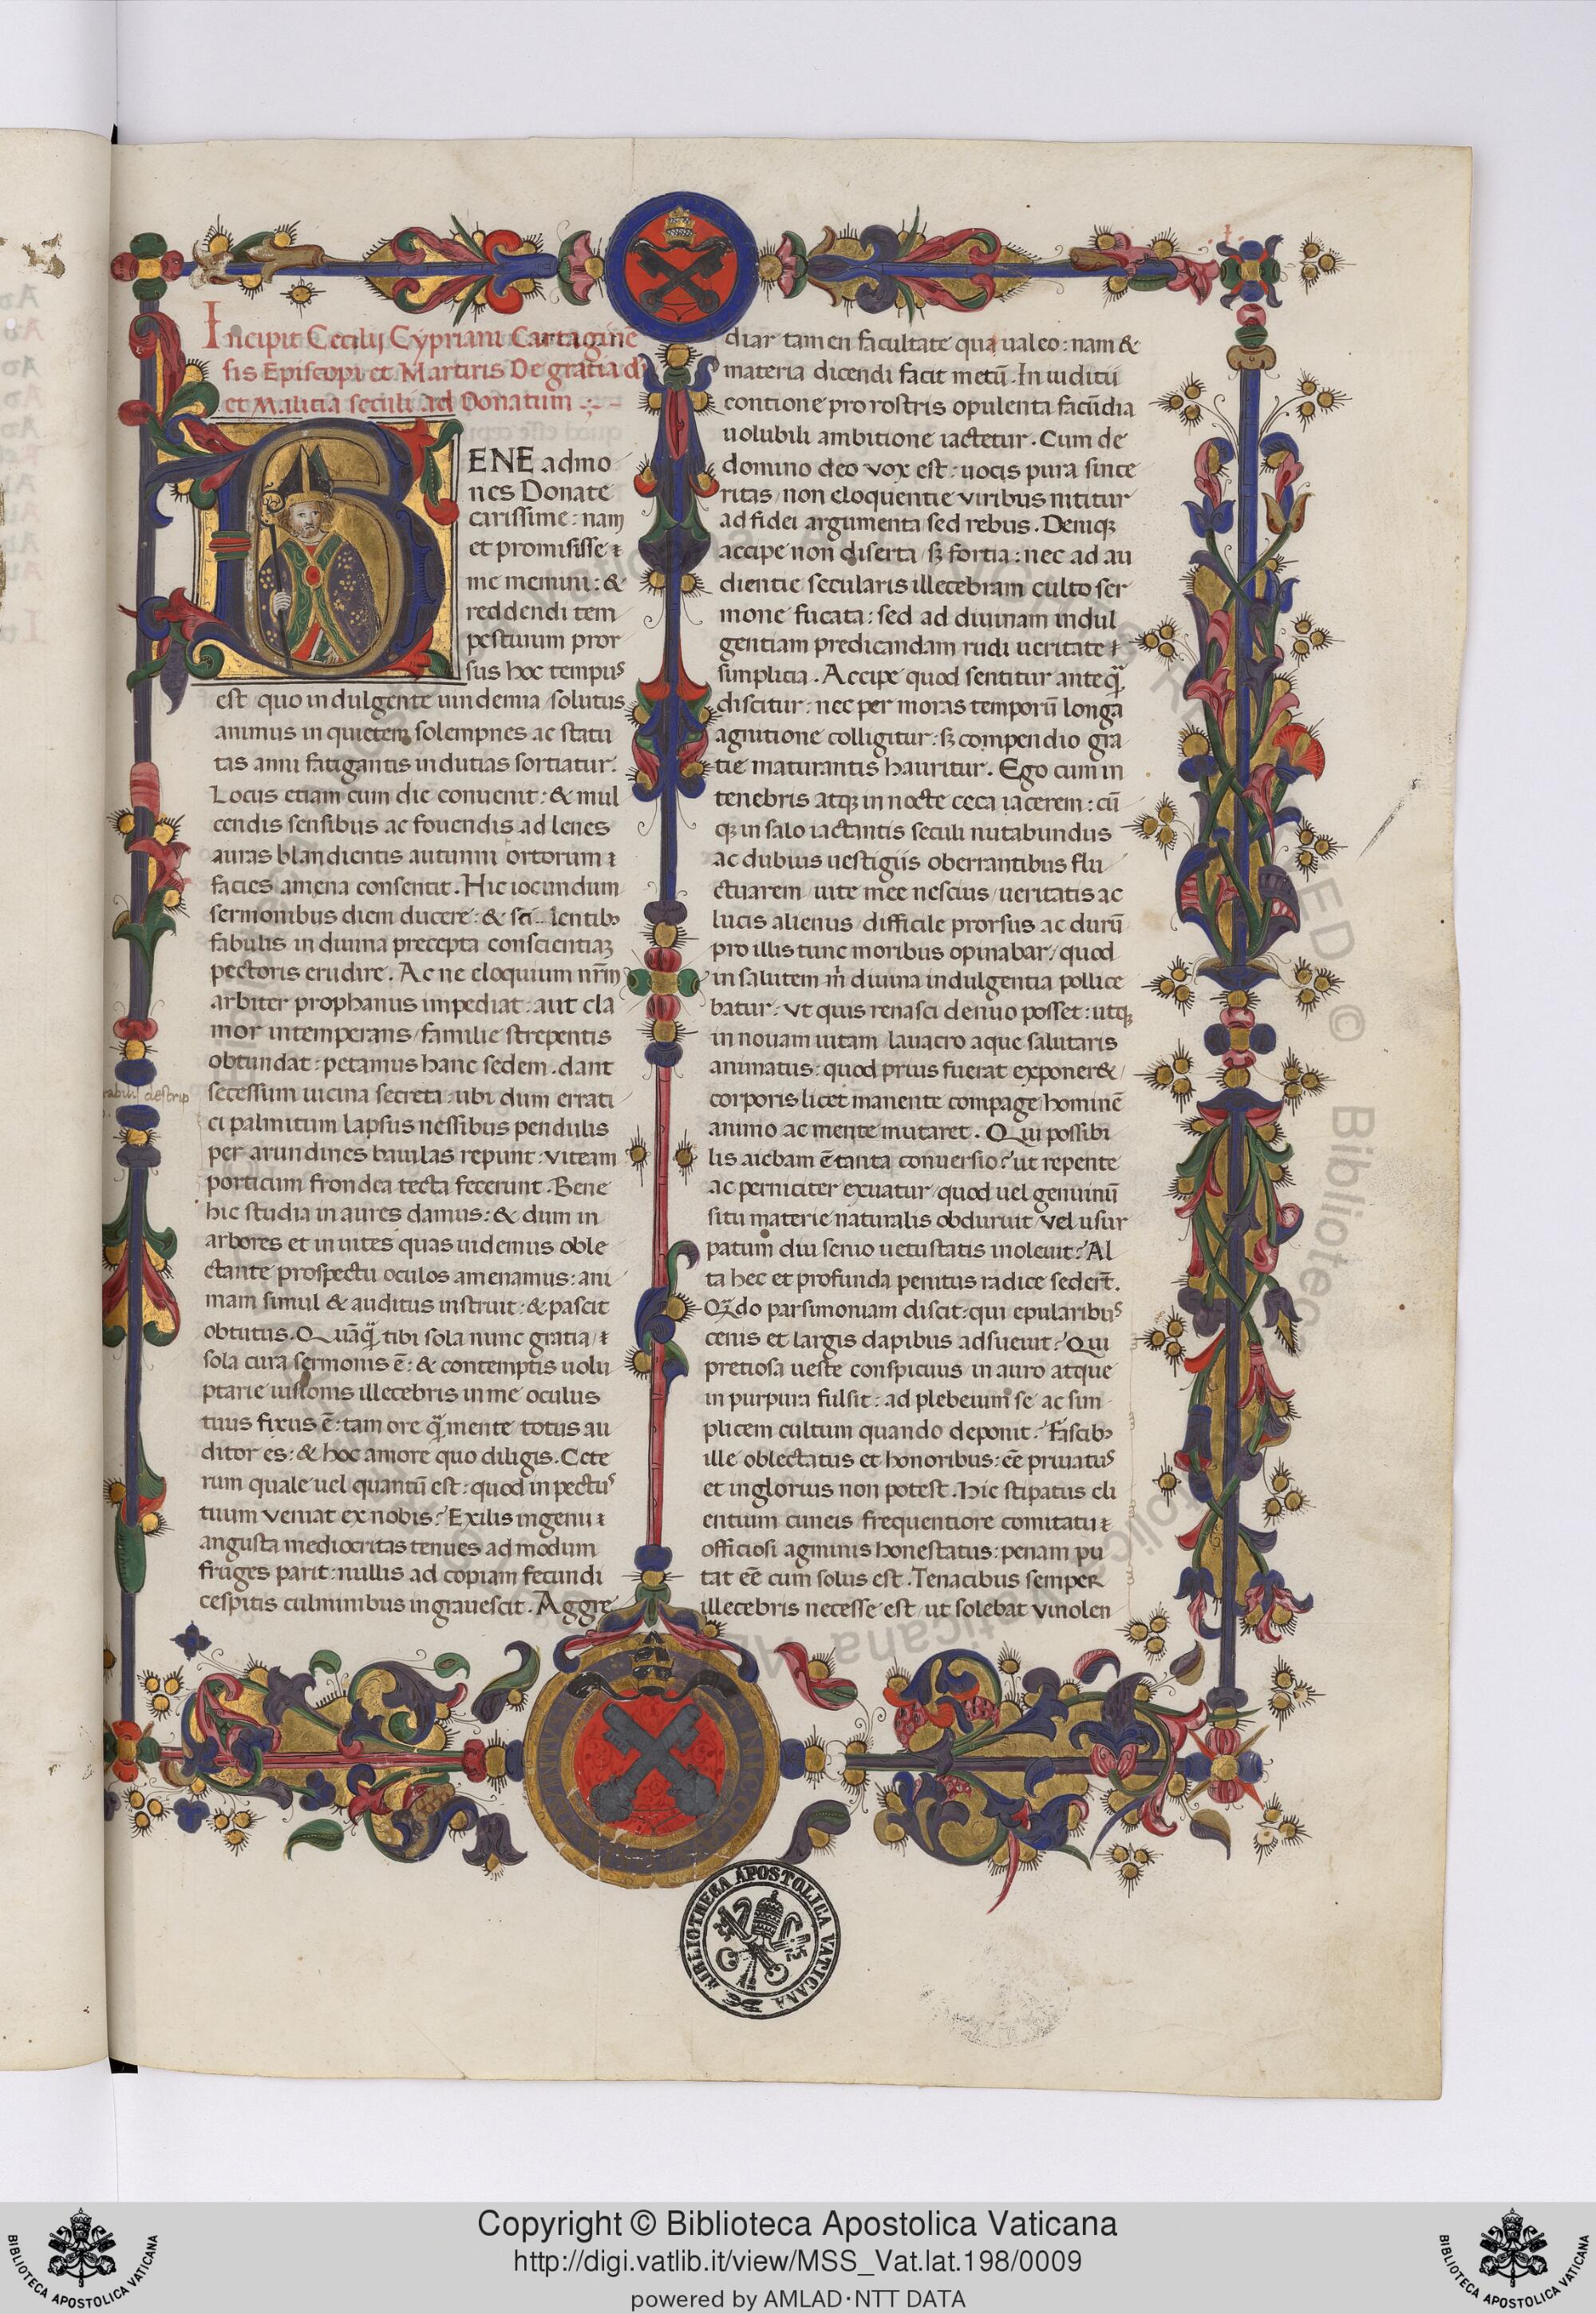 Incipit Cecilij Cypriani Cartaginē
sis Episcopi et Martiris De gratia dī
et Malitia seculi ad Donatum
BENE admo
nes Donate
carissime: nam
et promisisse
me memini: &
reddendi tem
pestiuum pror
sus hoc tempuˢ
est quo indulgente uindemia / solutus
animus in quietem solempnes ac statu
tas anni fatigantis indutias sortiatur.
Locus etiam cum die conuenit: & mul
cendis sensibus ac fouendis ad lenes
auras blandientis autumni ortorum ⁊
facies amena consentit. Hic iocundum
sermonibus diem ducere: &
fabulis in diuina precepta conscientiaꝫ
pectoris erudire. Ac ne eloquium nr̄m
arbiter prophanus impediat: aut cla
mor intemperans / familie strepentis
obtundat: petamus hanc sedem. dant
secessum uicina secreta: ubi dum errati
ci palmitum lapsus nessibus pendulis
per arundines baiulas repunt: viteam
porticum frondea tecta fecerunt. Bene
hic studia in aures damus: & dum in
arbores et in uites quas uidemus oble
ctante prospectu oculos amenamus: ani
mam simul & auditus instruit: & pascit
obtutus. Quāq̄ tibi sola nunc gratia / ⁊
sola cura sermonis ē: & contemptis uolu
ptarie uisionis illecebris in me oculus
tuus fixus ē: tam ore q̄ mente totus au
ditor es: & hoc amore quo diligis. Cete
rum quale uel quantū est: quod in pectuˢ
tuum veniat ex nobis? Exilis ingenii ⁊
angusta mediocritas tenues admodum
fruges parit: nullis ad copiam fecundi
cespitis culminibus ingrauescit. Aggre
diar tamen facultate qua ualeo: nam &
materia dicendi facit metū. In iuditii
contione pro rostris opulenta facūdia
uolubili ambitione iactetur. Cum de
domino deo vox est: uocis pura since
ritas / non eloquentie viribus nititur
ad fidei argumenta sed rebus. Deniqꝫ
accipe non diserta / sꝫ fortia: nec ad au
dientie secularis illecebram culto ser
mone fucata: sed ad diuinam indul
gentiam predicandam rudi ueritate ⁊
simplicia. Accipe quod sentitur anteq̄
discitur: nec per moras temporū longa
agnitione colligitur: sꝫ compendio gra
tie maturantis hauritur. Ego cum in
tenebris atqꝫ in nocte ceca iacerem: cū
qꝫ in salo iactantis seculi nutabundus
ac dubius uestigiis oberrantibus flu
ctuarem uite mee nescius / ueritatis ac
lucis alienus / difficile prorsus ac durū
pro illis tunc moribus opinabar / quod
in salutem m̄ diuina indulgentia pollice
batur: vt quis renasci denuo posset: utqꝫ
in nouam uitam lauacro aque salutaris
animatus: quod prius fuerat exponer&
corporis licet manente compage hominē
animo ac mente mutaret. Qui possibi
lis aiebam ē tanta conuersio? ut repente
ac perniciter exuatur / quod uel genuinū
situ materie naturalis obduruit / vel usur
patum diu senio uetustatis inoleuit? Al
ta hec et profunda penitus radice sedeȓt.
Qn̄do parsimoniam discit: qui epularibuˢ
cenis et largis dapibus adsueuit? Qui
pretiosa ueste conspicuus in auro atque
in purpura fulsit: ad plebeium se ac sim
plicem cultum quando deponit? Fascibꝫ
ille oblectatus et honoribus: eē priuatuˢ
et inglorius non potest. Hic stipatus cli
entium cuneis frequentiore comitatu ⁊
officiosi agminis honestatus: penam pu
tat eē cum solus est. Tenacibus semper
illecebris necesse est / ut solebat vinolen
BIBLIOTHECA APOSTOLICA VATICANA
Copyright © Biblioteca Apostolica Vaticana
http://digi.vatlib.it/view/MSS_Vat.lat.198/0009
powered by AMLAD·NTT DATA
BIBLIOTECA APOSTOLICA VATICANA
BIBLIOTECA APOSTOLICA VATICANA